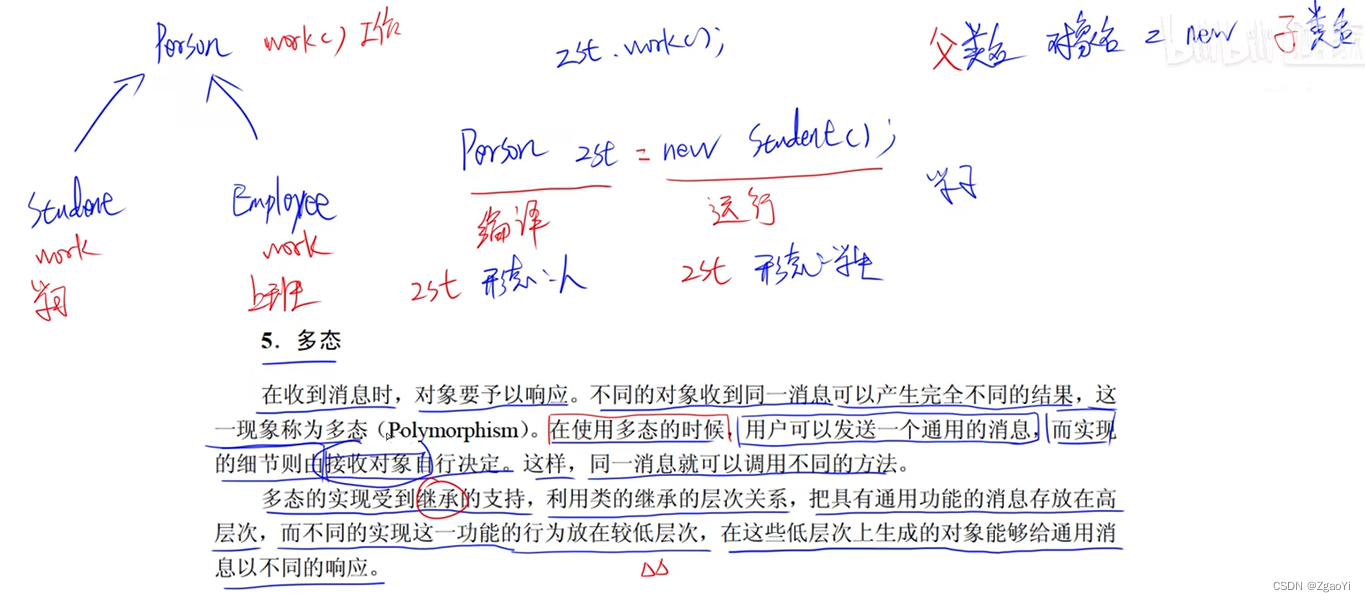 Person work() 工作
zst.work();
父类名 对象名 = new 子类名
bilibili
Person zst = new Student();
编译
运行
学习
Student
work
学习
Employee
work
上班
zst 形态:人
zst 形态:学生
5. 多态
在收到消息时，对象要予以响应。不同的对象收到同一消息可以产生完全不同的结果，这
一现象称为多态（Polymorphism）。在使用多态的时候，用户可以发送一个通用的消息，而实现
的细节则由接收对象自行决定。这样，同一消息就可以调用不同的方法。
多态的实现受到继承的支持，利用类的继承的层次关系，把具有通用功能的消息存放在高
层次，而不同的实现这一功能的行为放在较低层次，在这些低层次上生成的对象能够给通用消
息以不同的响应。
CSDN @ZgaoYi